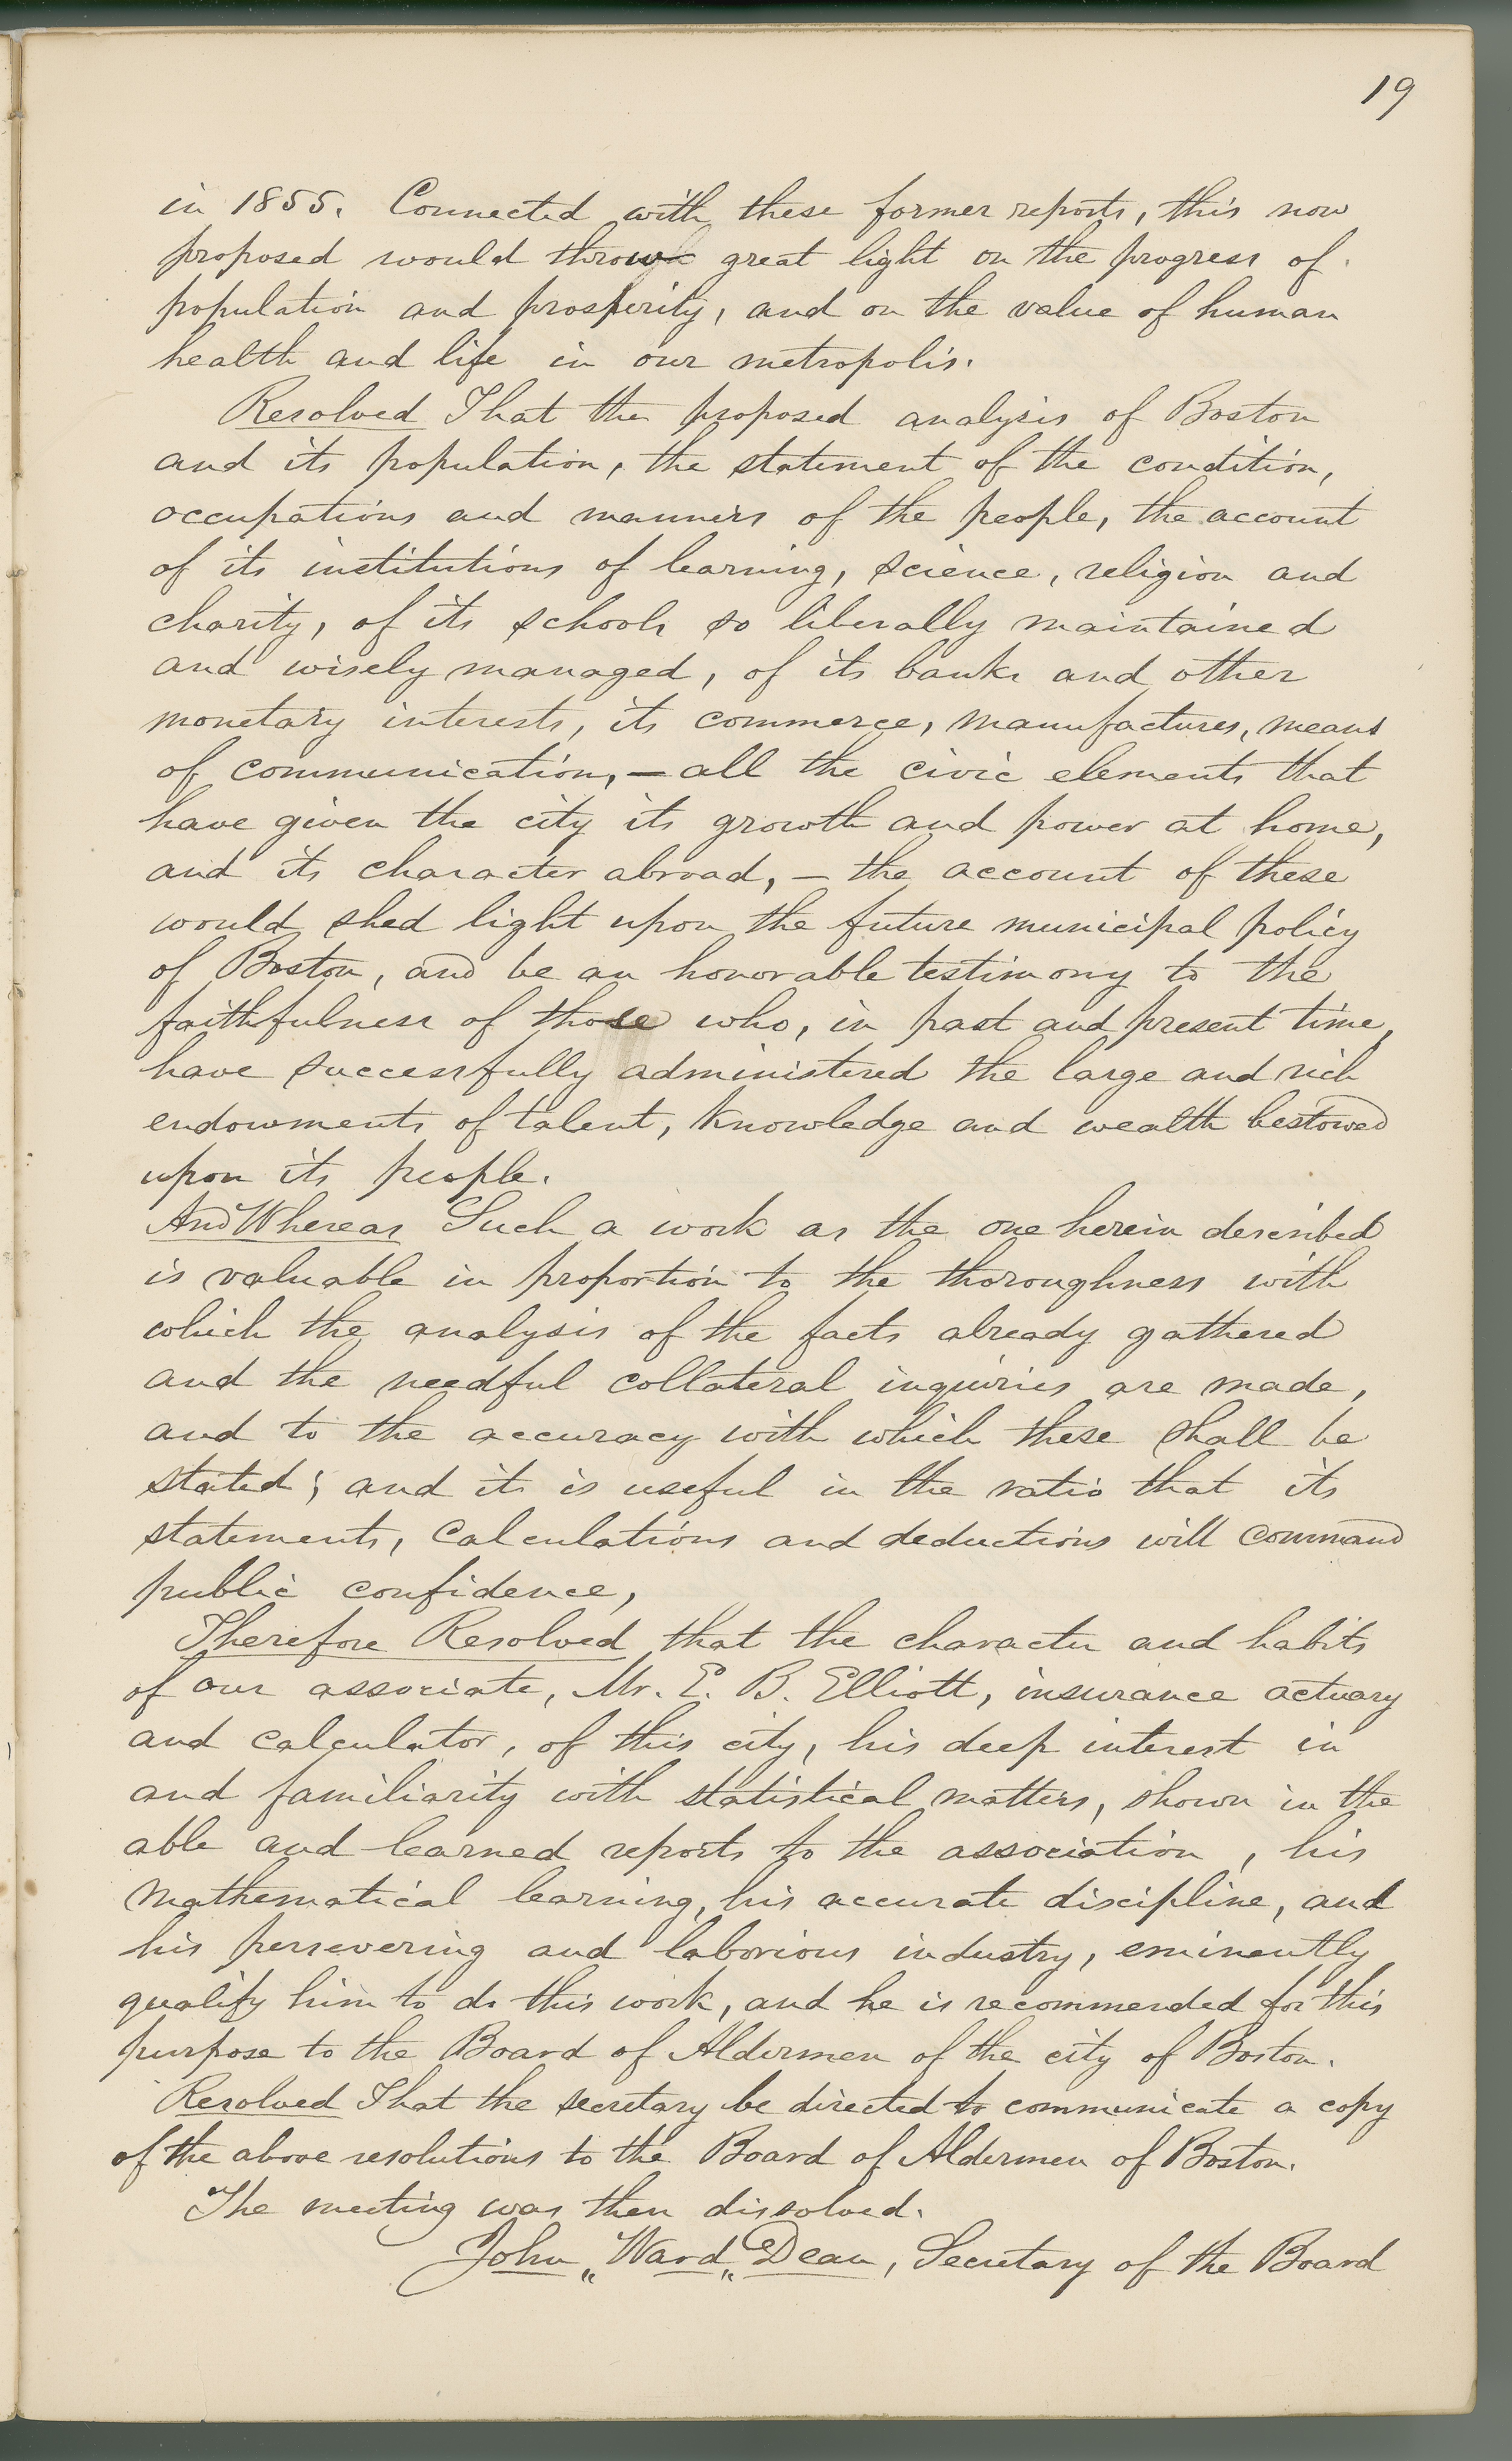 19
in 1855. Connected with these former reports, this now
proposed would throw great light on the progress of
population and prosperity, and on the value of human
health and life in our metropolis.
Resolved That the proposed analysis of Boston
and its population, the statement of the condition,
occupations and manners of the people, the account
of its institutions of learning, science, religion and
charity, of its schools so liberally maintained
and wisely managed, of its banks and other
monetary interests, its commerce, manufactures, means
of communication, — all the civic elements that
have given the city its growth and power at home,
and its character abroad, — the account of these
would shed light upon the future municipal policy
of Boston, and be an honorable testimony to the
faithfulness of those who, in past and present time,
have successfully administered the large and rich
endowments of talent, knowledge and wealth bestowed
upon its people.
And Whereas Such a work as the one herein described
is valuable in proportion to the thoroughness with
which the analysis of the facts already gathered
and the needful collateral inquiries are made,
and to the accuracy with which these shall be
stated; and it is useful in the ratio that its
statements, calculations and deductions will command
public confidence,
Therefore Resolved that the character and habits
of our associate, Mr. E. B. Elliott, insurance actuary
and calculator, of this city, his deep interest in
and familiarity with statistical matters, shown in the
able and learned reports to the association, his
mathematical learning, his accurate discipline, and
his persevering and laborious industry, eminently
qualify him to do this work, and he is recommended for this
purpose to the Board of Aldermen of the city of Boston.
Resolved That the secretary be directed to communicate a copy
of the above resolutions to the Board of Aldermen of Boston.
The meeting was then dissolved.
John „ Ward „ Dean, Secretary of the Board